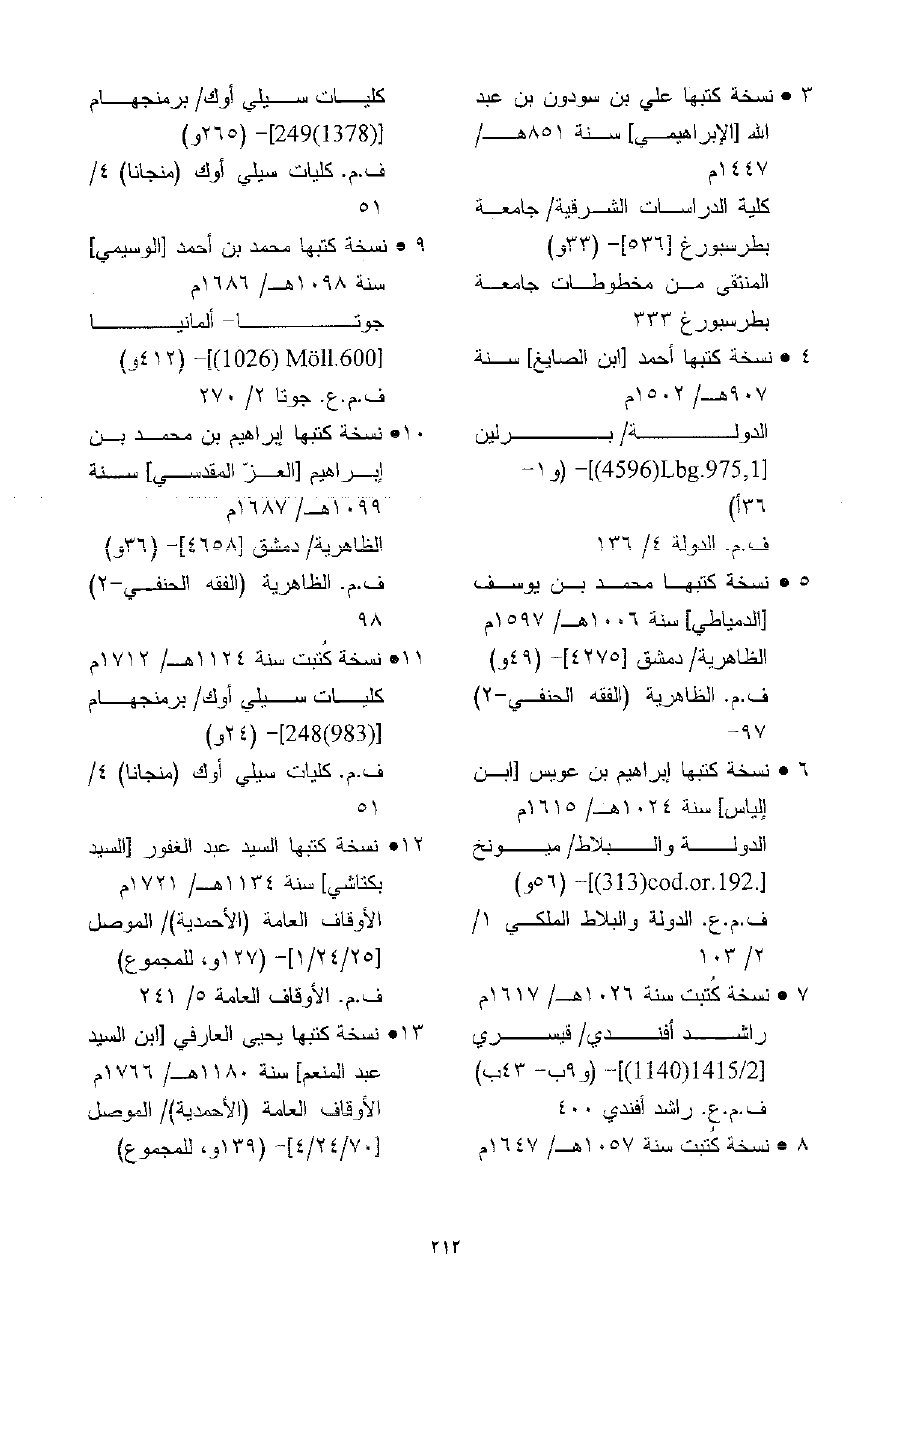 ٣ • نسخة كتبها علي بن سودون بن عبد
الله [الإبراهيمي] سنة ٨٥١هـ/
١٤٤٧م
كلية الدراسات الشرقية/ جامعة
بطرسبورغ [٥٣٦]- (٣٣و)
المنتقى من مخطوطات جامعة
بطرسبورغ ٣٣٣
٤ • نسخة كتبها أحمد [ابن الصايغ] سنة
٩٠٧هـ/ ١٥٠٢م
الدولة/ برلين
[4596)Lbg.975,1)]- (و ١-
٣٦أ)
ف.م. الدولة ٤/ ١٣٦
٥ • نسخة كتبها محمد بن يوسف
[الدمياطي] سنة ١٠٠٦هـ/ ١٥٩٧م
الظاهرية/ دمشق [٤٢٧٥]- (٤٩و)
ف.م. الظاهرية (الفقه الحنفي-٢)
٩٧-
٦ • نسخة كتبها إبراهيم بن عويس [ابن
إلياس] سنة ١٠٢٤هـ/ ١٦١٥م
الدولة والبلاط/ ميونخ
[.313)cod.or.192)]- (٥٦و)
ف.م.ع. الدولة والبلاط الملكي ١/
٢/ ١٠٣
٧ • نسخة كُتبت سنة ١٠٢٦هـ/ ١٦١٧م
راشد أفندي/ قيسري
[1140)1415/2)]- (و٩ب- ٤٣ب)
ف.م.ع. راشد أفندي ٤٠٠
٨ • نسخة كُتبت سنة ١٠٥٧هـ/ ١٦٤٧م
كليات سيلي أوك/ برمنجهام
[249(1378)]- (٢٦٥و)
ف.م. كليات سيلي أوك (منجانا) ٤/
٥١
٩ • نسخة كتبها محمد بن أحمد [الوسيمي]
سنة ١٠٩٨هـ/ ١٦٨٦م
جوتا- ألمانيا
[1026) Möll.600)]- (٤١٢و)
ف.م.ع. جوتا ٢/ ٢٧٠
١٠• نسخة كتبها إبراهيم بن محمد بن
إبراهيم [العزّ المقدسي] سنة
١٠٩٩هـ/ ١٦٨٧م
الظاهرية/ دمشق [٤٦٥٨]- (٣٦و)
ف.م. الظاهرية (الفقه الحنفي-٢)
٩٨
١١• نسخة كُتبت سنة ١١٢٤هـ/ ١٧١٢م
كليات سيلي أوك/ برمنجهام
[248(983)]- (٢٤و)
ف.م. كليات سيلي أوك (منجانا) ٤/
٥١
١٢• نسخة كتبها السيد عبد الغفور [السيد
بكتاشي] سنة ١١٣٤هـ/ ١٧٢١م
الأوقاف العامة (الأحمدية)/ الموصل
[١/٢٤/٢٥]- (١٢٧و، للمجموع)
ف.م. الأوقاف العامة ٥/ ٢٤١
١٣• نسخة كتبها يحيى العارفي [ابن السيد
عبد المنعم] سنة ١١٨٠هـ/ ١٧٦٦م
الأوقاف العامة (الأحمدية)/ الموصل
[٤/٢٤/٧٠]- (١٣٩و، للمجموع)
٢١٢